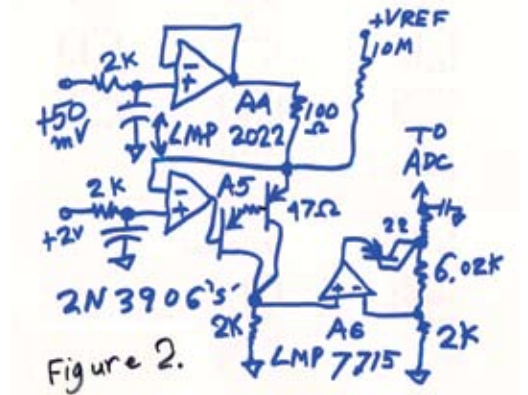 +VREF
10M
2K
-
+
+50
mV
AA
LMP
2022
100
Ω
TO
ADC
2K
-
+
A5
47Ω
+2V
22
6.02K
2N3906's
2K
+ -
A6
2K
LMP 7715
Figure 2.